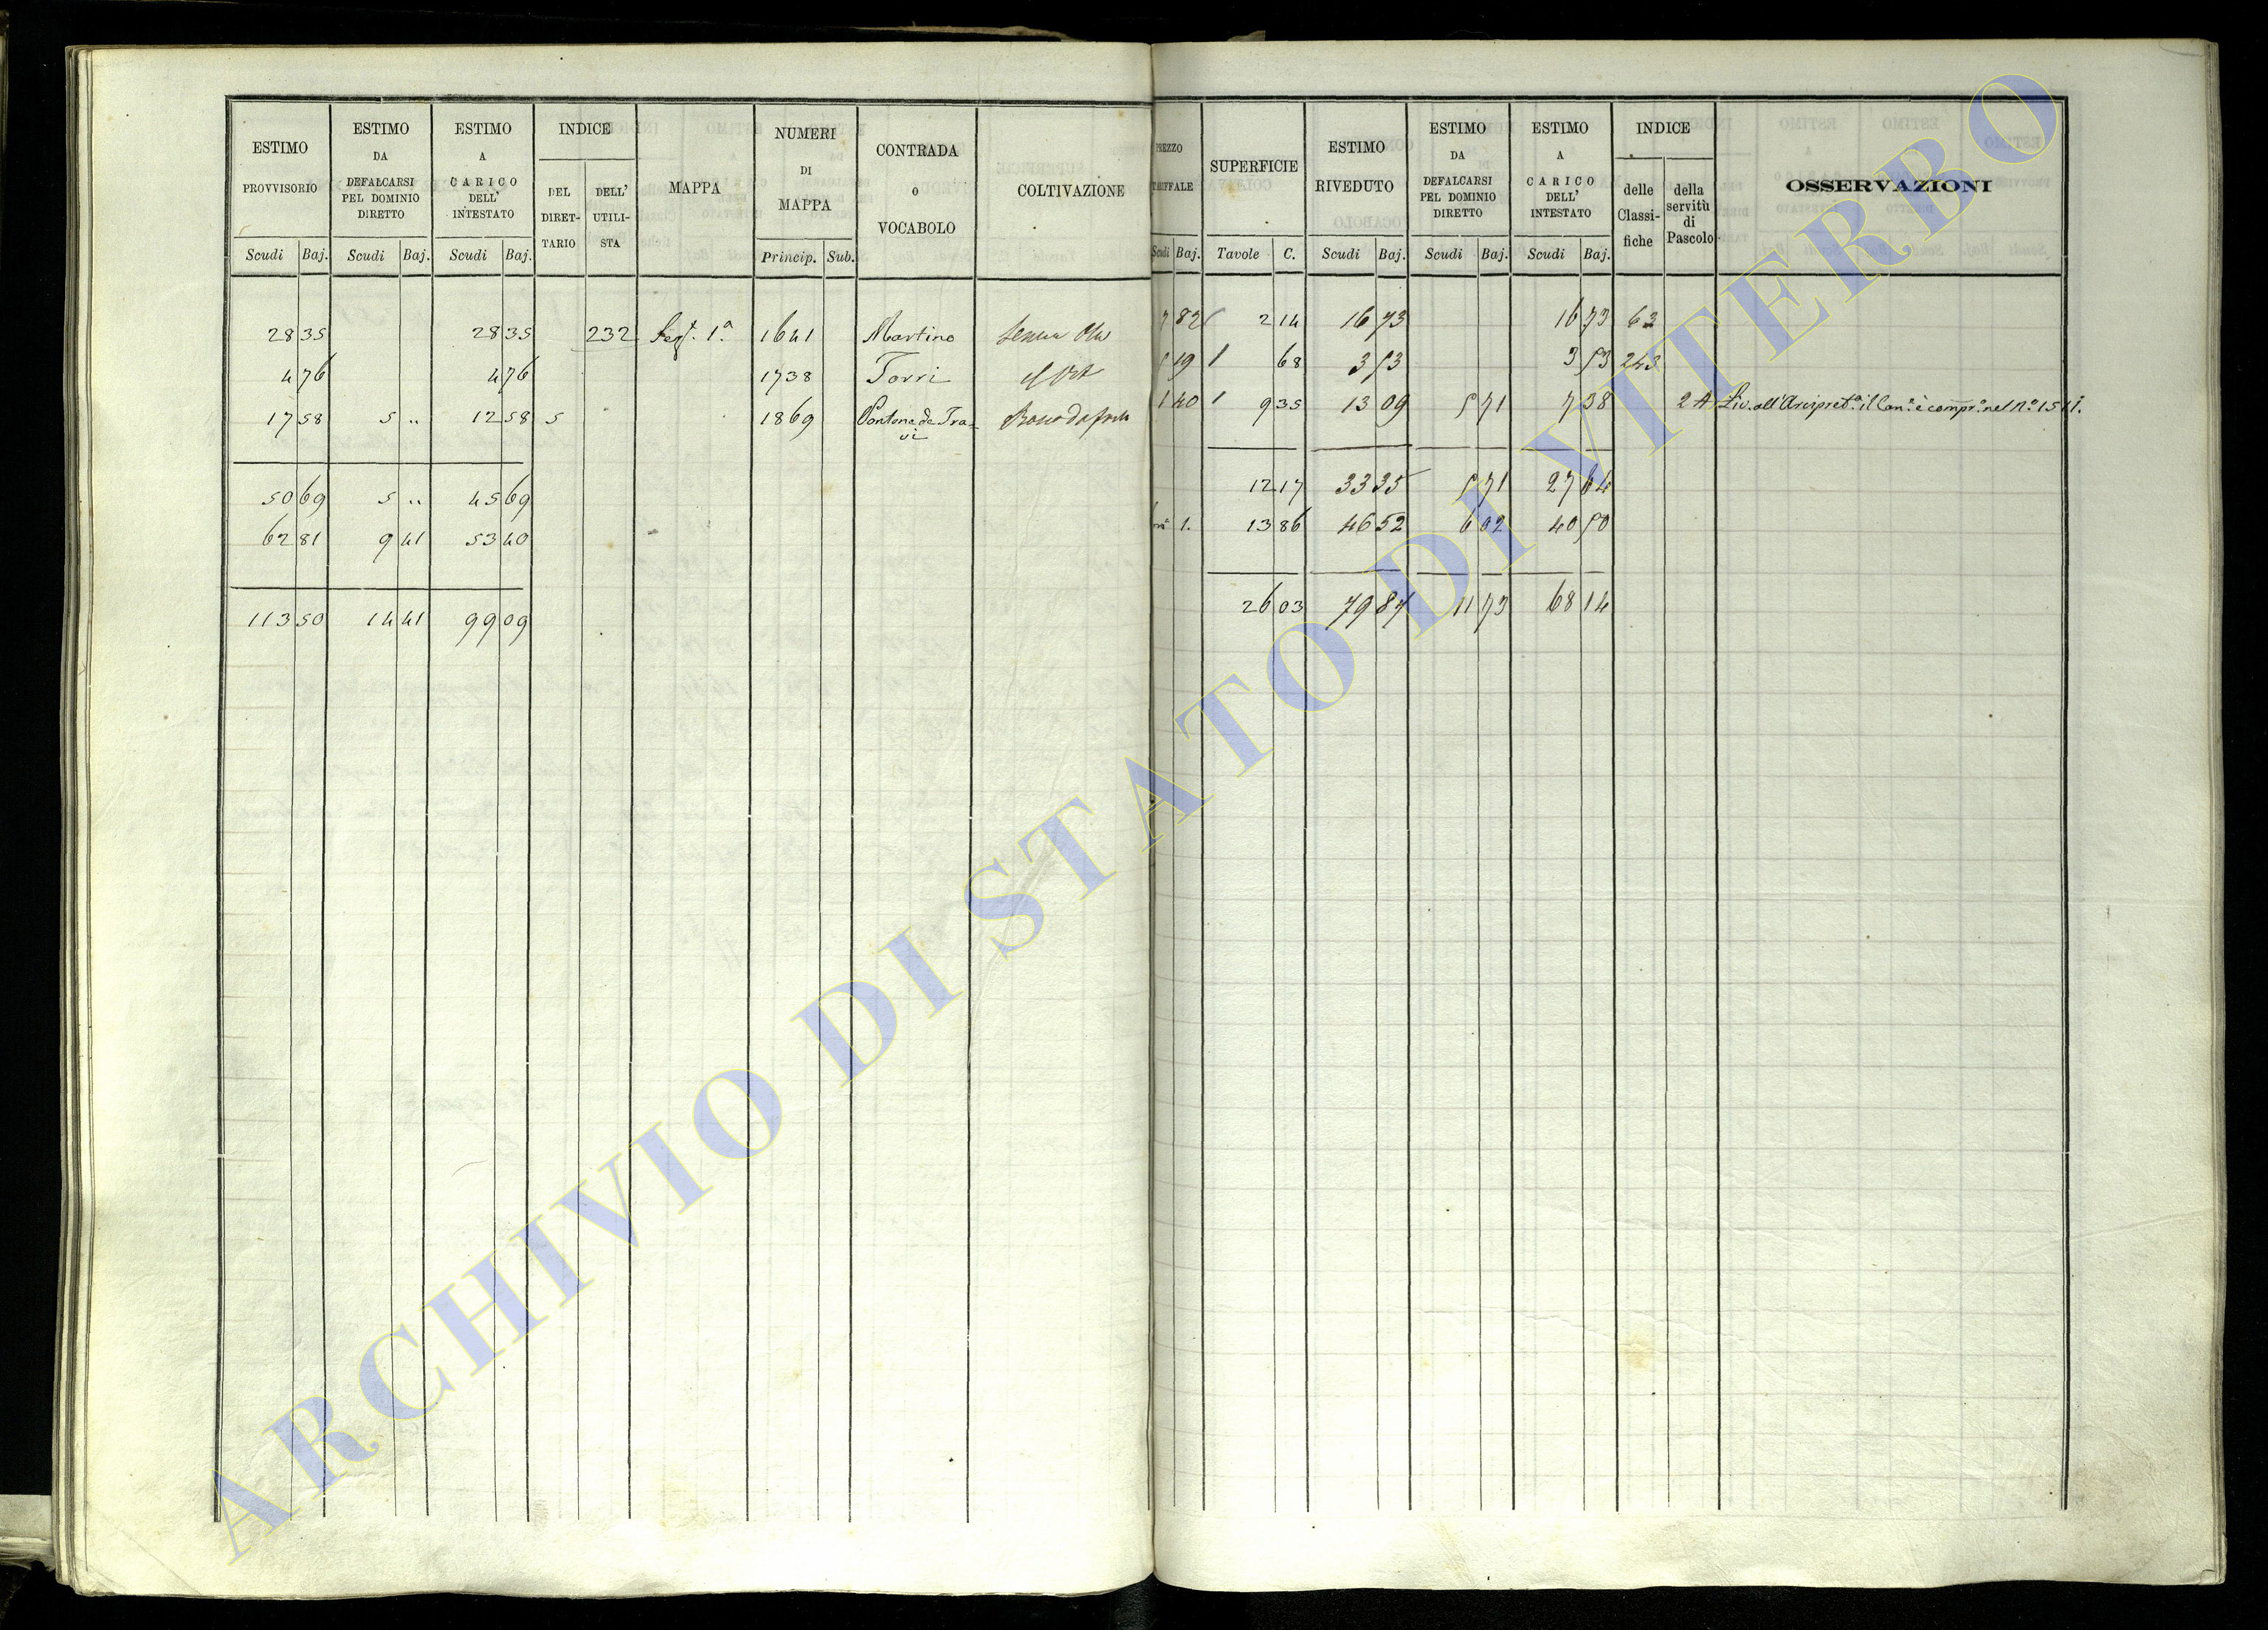 ESTIMO PROVVISORIO
Scudi Baj.
ESTIMO DA DEFALCARSI PEL DOMINIO DIRETTO
Scudi Baj.
ESTIMO A CARICO DELL' INTESTATO
Scudi Baj.
INDICE
DEL DIRET-TARIO
DELL' UTILI-STA
MAPPA
NUMERI DI MAPPA
Princip. Sub.
CONTRADA O VOCABOLO
COLTIVAZIONE
PREZZO TARIFFALE
Scudi Baj.
SUPERFICIE
Tavole C.
ESTIMO RIVEDUTO
Scudi Baj.
ESTIMO DA DEFALCARSI PEL DOMINIO DIRETTO
Scudi Baj.
ESTIMO A CARICO DELL' INTESTATO
Scudi Baj.
INDICE
delle Classi-fiche
della servitù di Pascolo
OSSERVAZIONI
28 35 28 35 232 1ª 1641 Martino 82 2 14 16 73 16 73 63
4 76 4 76 1738 Torri 19 68 3 53 3 53 243
17 58 5 " 12 58 5 1869 1 40 9 35 13 09 5 71 7 38 2 A Liv. all'Arcipret.ª il Can.e è compr.o nel N.o 1511.
50 69 5 " 45 69 12 17 33 35 5 71 27 64
62 81 9 41 53 40 1. 13 86 46 52 6 02 40 50
113 50 14 41 99 09 26 03 79 87 11 73 68 14
ARCHIVIO DI STATO DI VITERBO